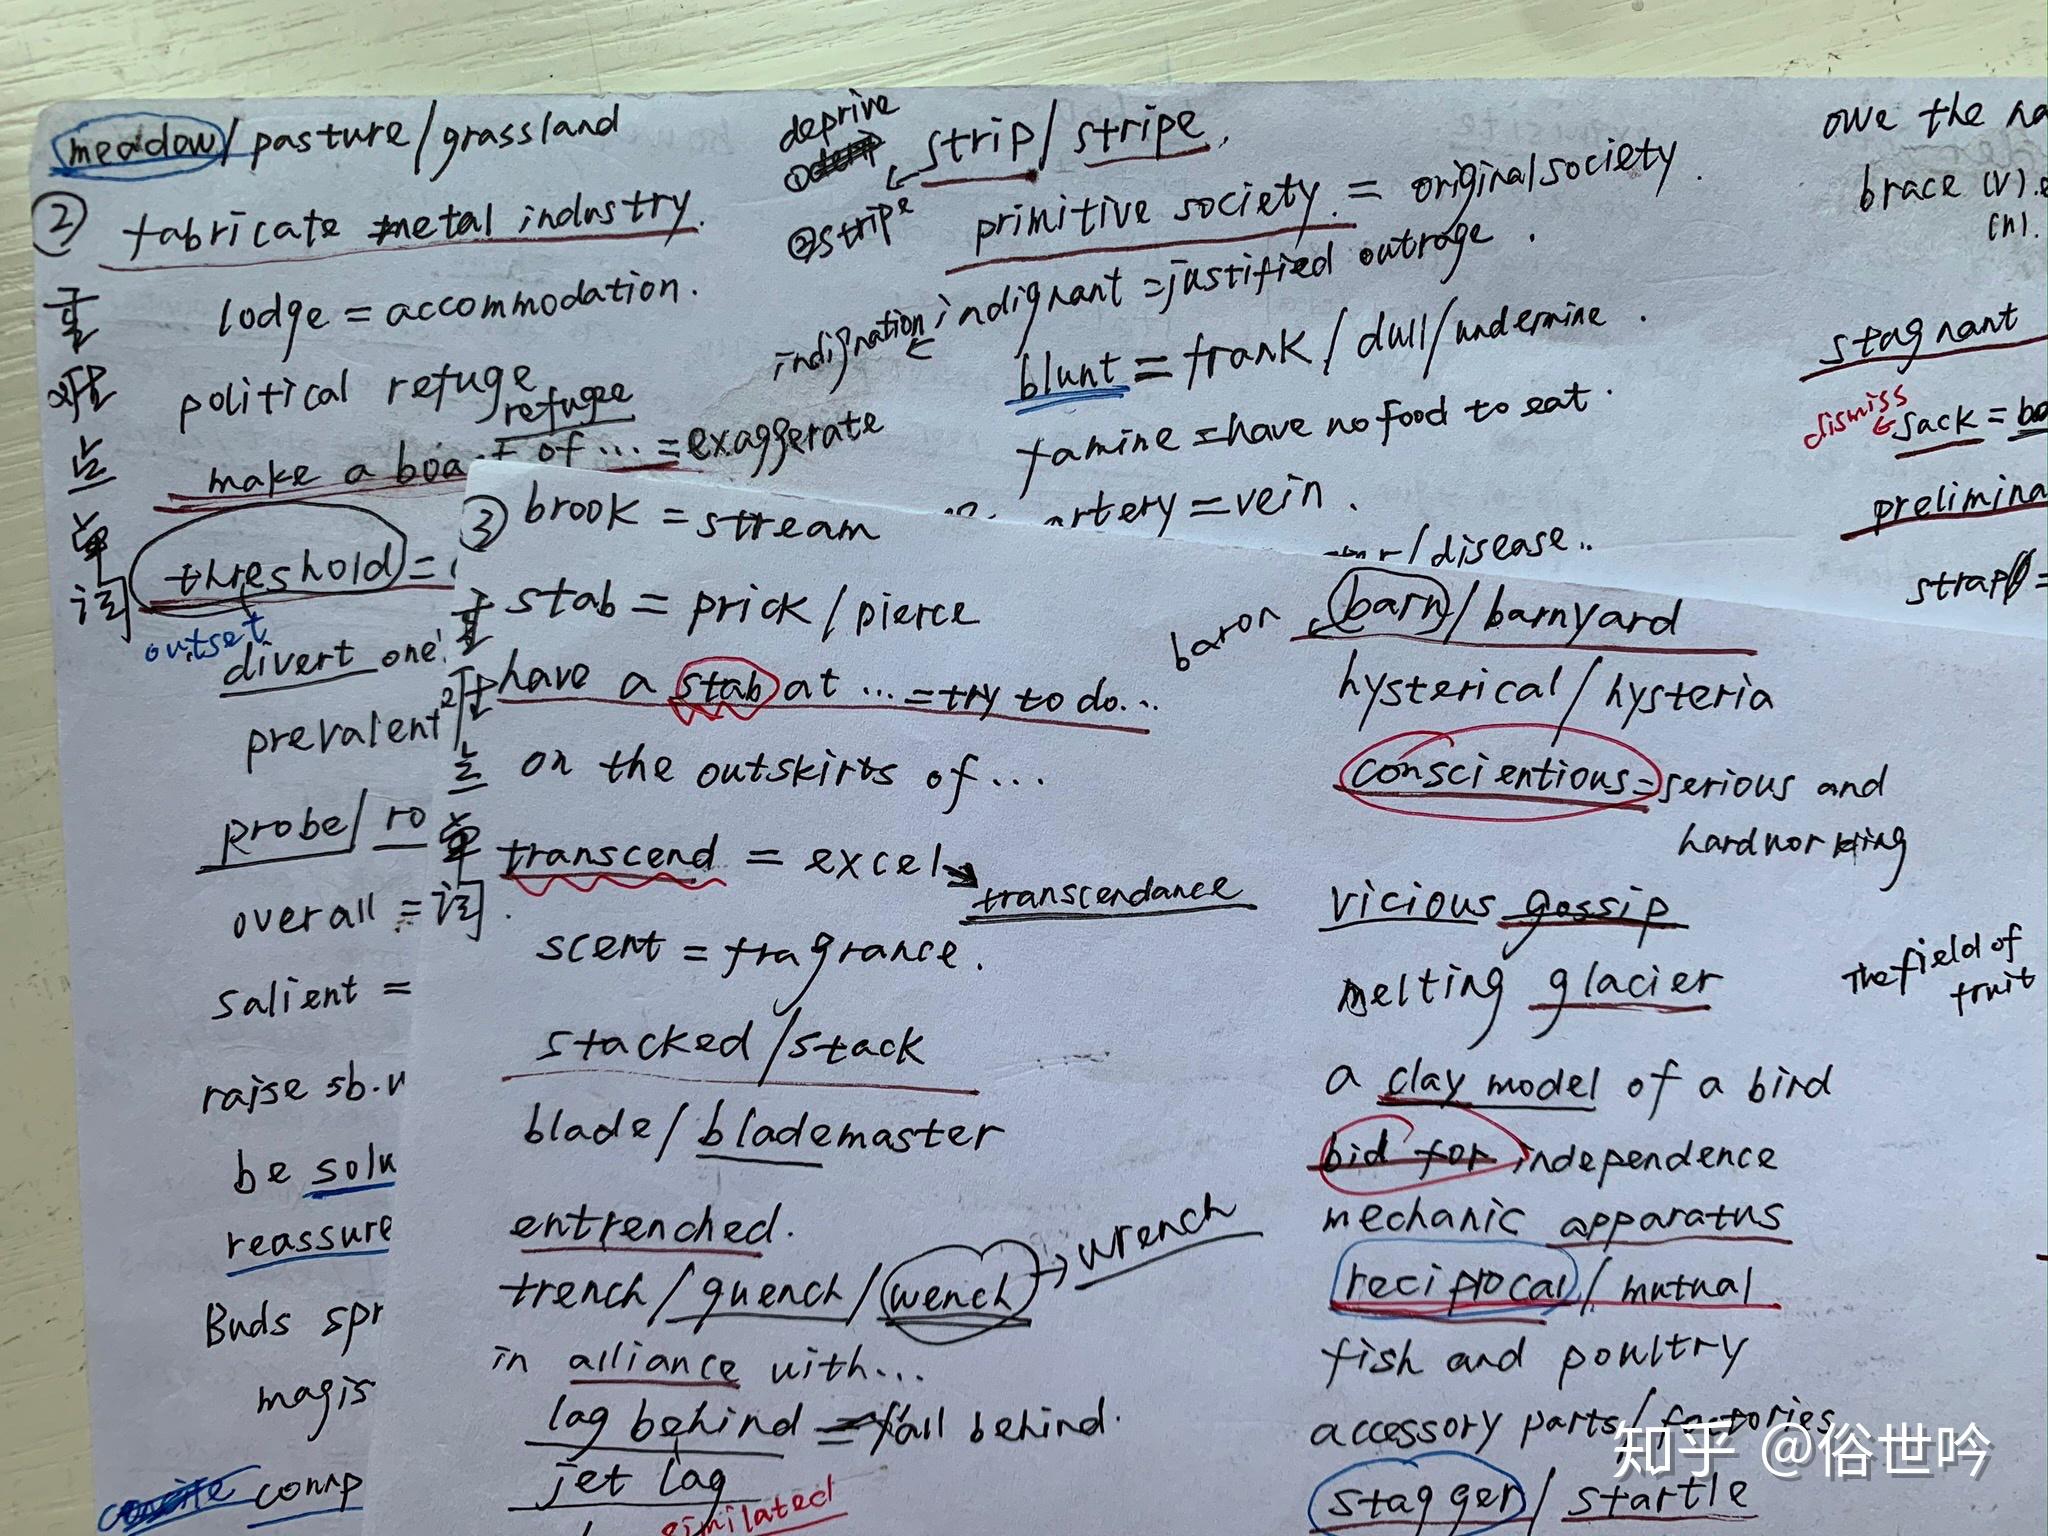 meadow/pasture/grassland
②
fabricate metal industry.
重
点
单
词
lodge = accommodation.
political refuge
refugee
make a boast of ... = exaggerate
threshold =
outset
divert one'
prevalent
probe/ro
overall =
salient =
raise sb.
be solu
reassure
Buds spr
magis
comp
deprive
①
②stripe
strip/stripe,
primitive society. = original society.
indignation
indignant = justified outrage.
blunt = frank/dull/undermine.
famine = have no food to eat.
artery = vein.
/disease..
owe the na
brace (v).
(n).
stagnant
dismiss
sack = ba
prelimina
strap =
③
重
点
单
词
brook = stream
stab = prick/pierce
have a stab at ... = try to do...
on the outskirts of ...
transcend = excel
transcendance
scent = fragrance.
stacked/stack
blade/blademaster
entrenched.
trench/quench/wench → wrench
in alliance with...
lag behind = fall behind.
jet lag
similated
baron
barn/barnyard
hysterical/hysteria
conscientious = serious and
hardworking
vicious gossip
melting glacier
The field of
fruit
a clay model of a bird
bid for independence
mechanic apparatus
reciprocal/mutual
fish and poultry
accessory parts/factories
stagger/startle
知乎 @俗世吟